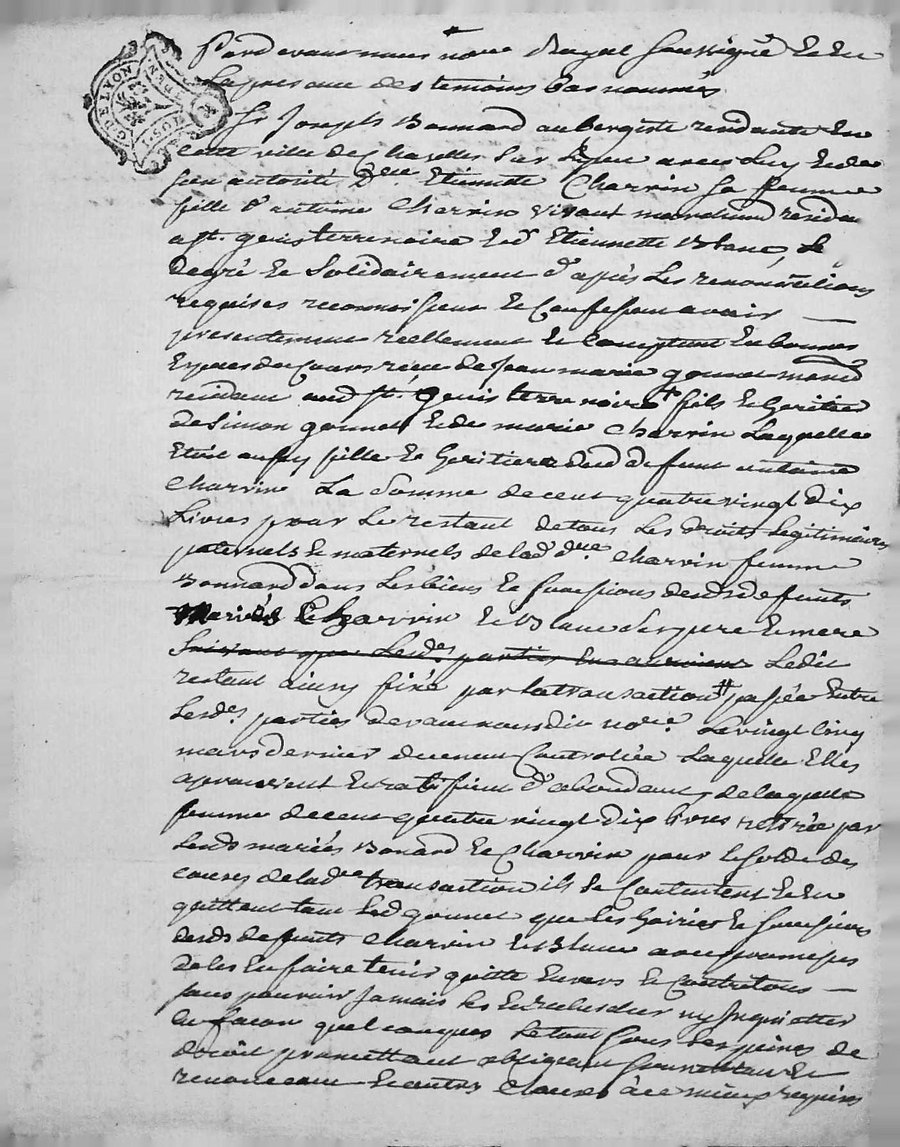 Pardevant nous no.re Royal soussigné et en
la presence des temoins bas nommés
Sr Joseph Bonnard aubergiste residant en
cette ville de Chazelles sur Lyon avec luy et de
son autorité D.lle Etiennette Charvin sa femme
fille d'antoine Charvin vivant marchand residant
a St. genis terrenoire et d'Etiennette Blanc, de
degré et solidairement d'apiés les renonciations
requises reconnoissent et confessent avoir
presentement reellement et comptant en bonnes
Especes de cours reçu de Jean marie gonnet march.d
residant aud. St. genis terre noire + fils et heritier
de Simon gonnet et de marie Charvin laquelle
Etoit aussy fille et heritiere dud. defunt antoine
Charvin la somme de cent quatre vingt dix
livres pour le restant de tous les droits legitimaires
paternels et maternels de lad. d.lle Charvin femme
Bonnard dans les biens et successions desds. defunts
mariés Charvin et Blanc ses pere et mere
suivant que lesd.es parties en Ledit
restant ainsy fixé par la transaction # passée entre
lesd.es parties devant nous dit no.re le vingt cinq
mars dernier duement Controllée laquelle Elles
aprouvent et ratifient d'abondant, de laquelle
somme de cent quatre vingt dix livres retirée par
lesds mariés Bonard et Charvin pour le solde des
causes de lad.e transaction ils se Contentent et en
quittent tant led. gonnet que les hoiries et successions
desds defunts Charvin et Blanc avec promesses
de les en faire tenir quitte envers et contre tous
sans pouvoir jamais les en rechercher ny Inquietter
en façon quelconques le tout sous les peines de
droit promettant obligeant soumettant et
renonceant et autres clauses à ce mieux requises